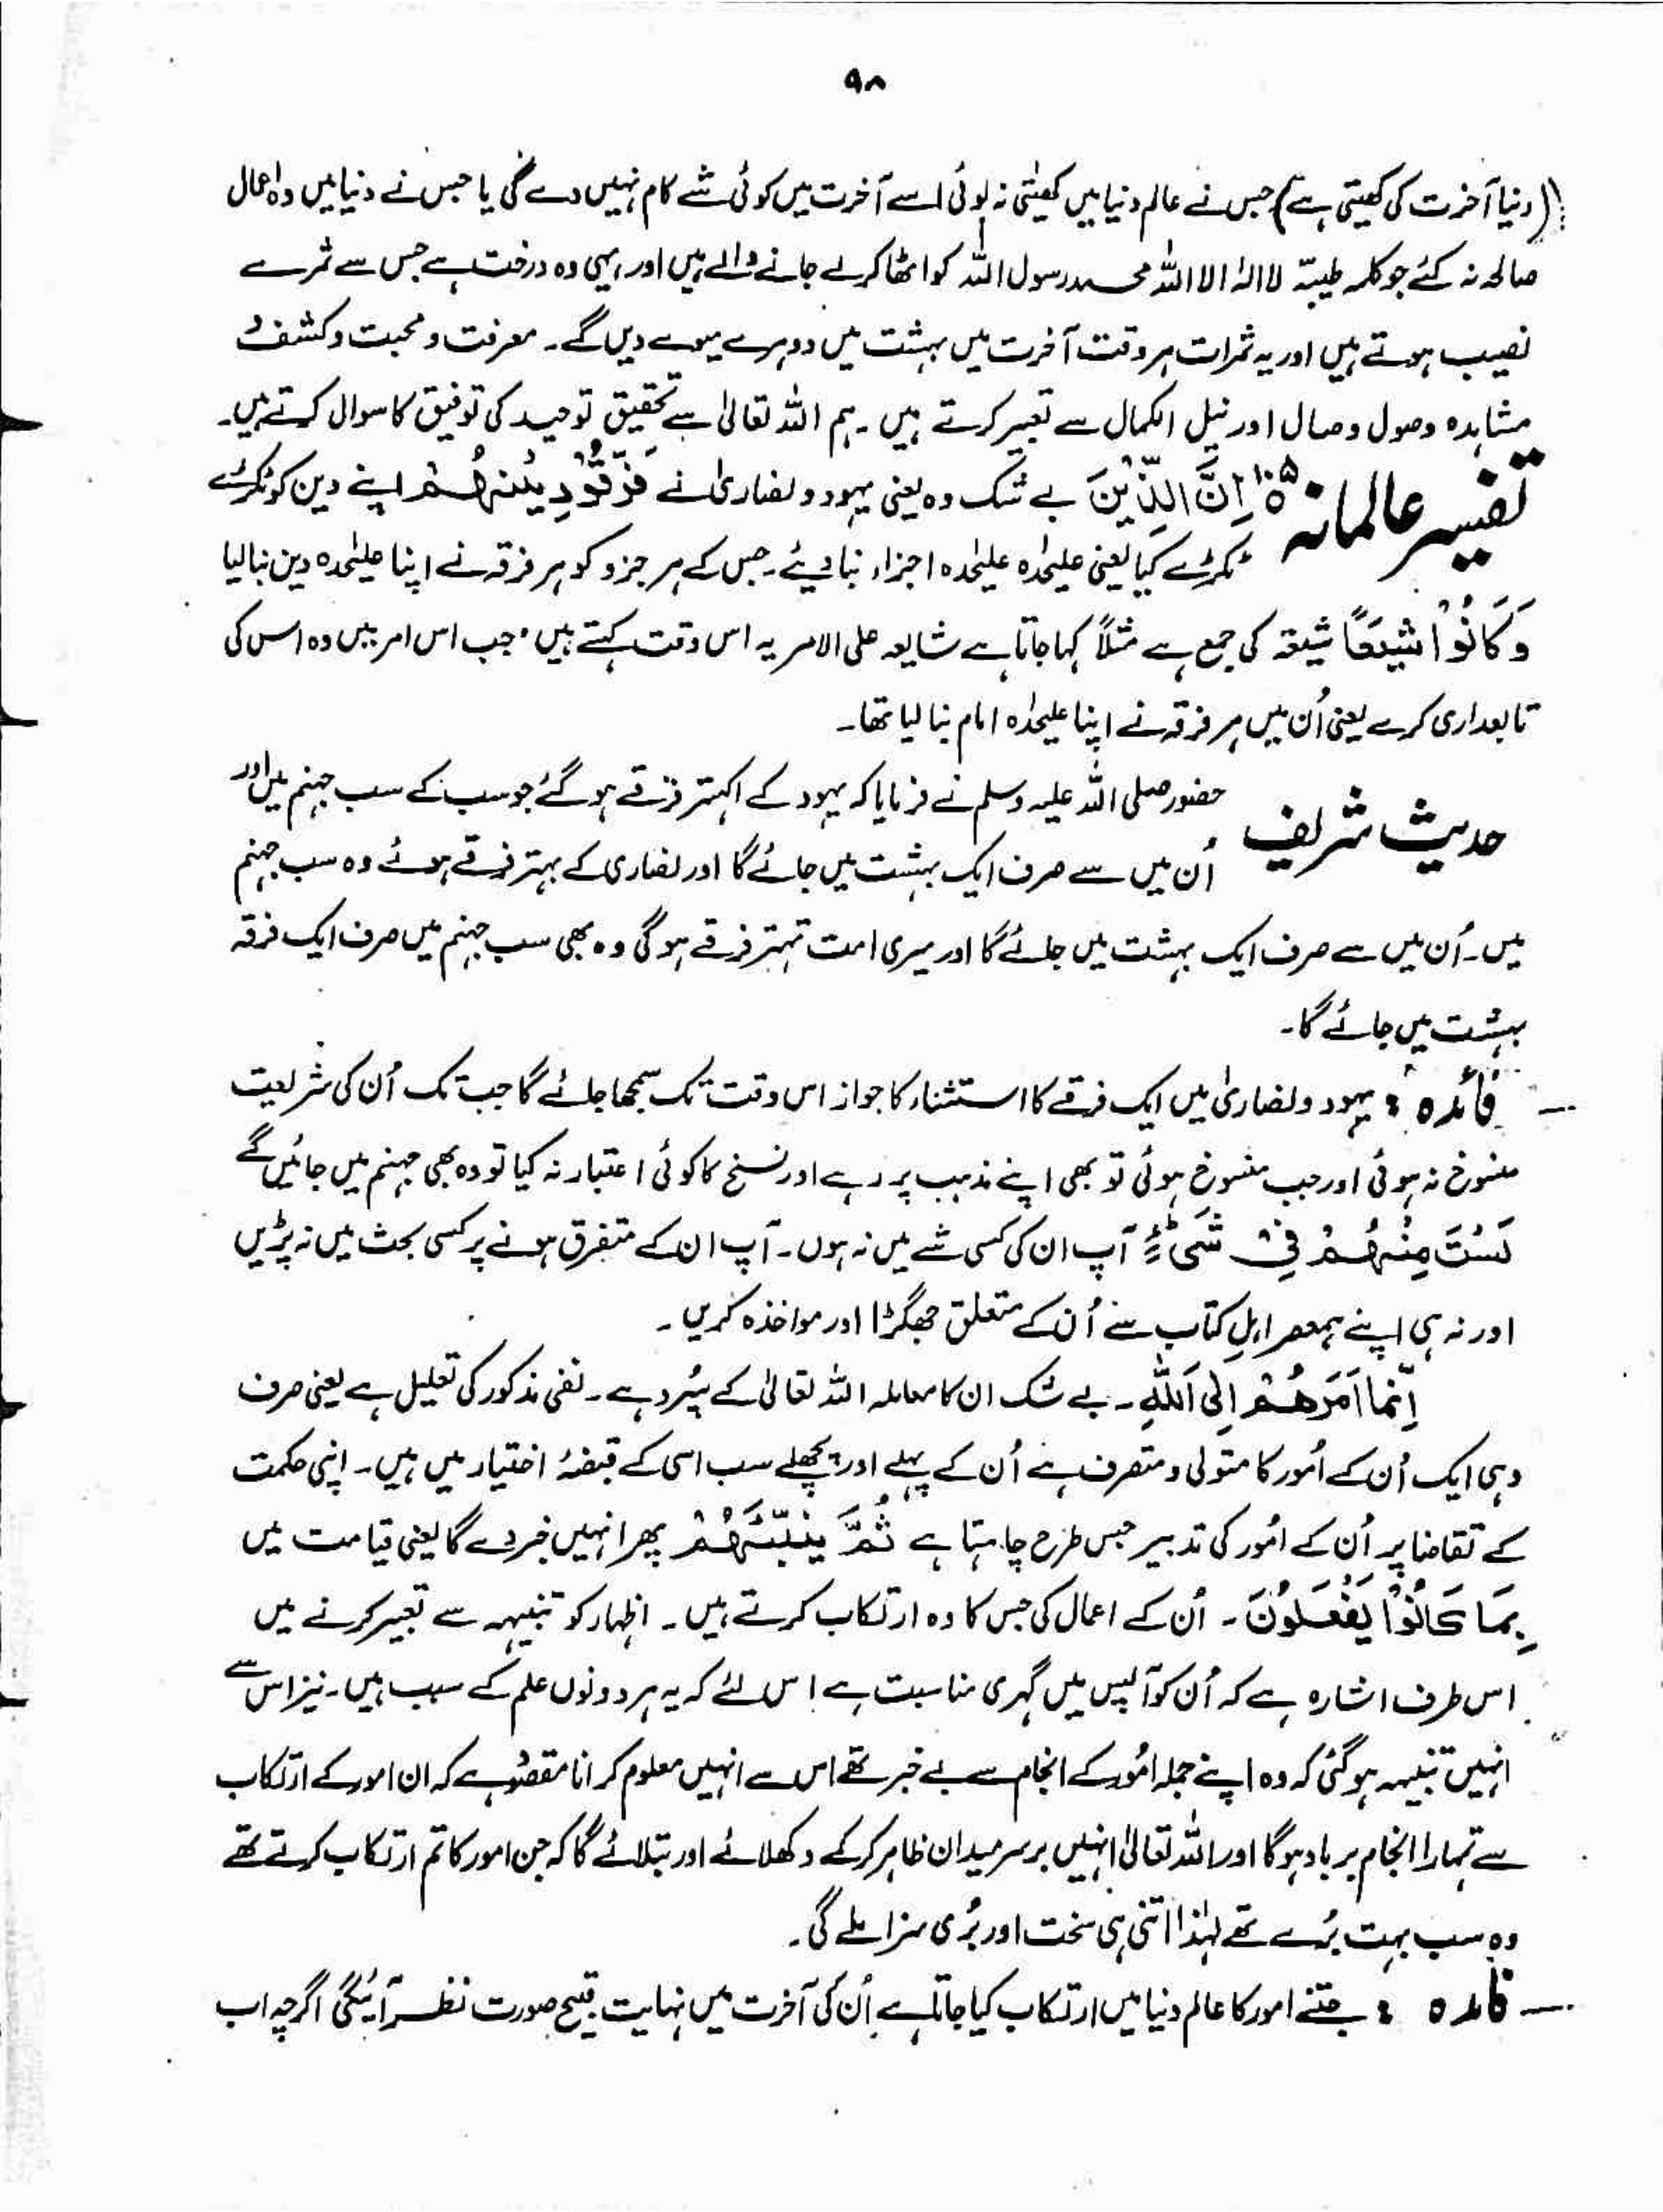 ۹۸
(دنیا آخرت کی کھیتی ہے) جس نے عالم دنیا میں کھیتی نہ بوئی اسے آخرت میں کوئی شے کام نہیں دے گی یا جس نے دنیا میں وہ اعمال
صالحہ نہ کئے جو کلمہ طیبہ لا الہ الا اللہ محمد رسول اللہ کو اٹھا کر لے جانے والے ہیں اور یہی وہ درخت ہے جس سے ثمرے
نصیب ہوتے ہیں اور یہ ثمرات ہر وقت آخرت میں بہشت میں دوہرے میوے دیں گے۔ معرفت و محبت و کشف و
مشاہدہ وصول وصال اور نیل الکمال سے تعبیر کرتے ہیں۔ ہم اللہ تعالیٰ سے تحقیق توحید کی توفیق کا سوال کرتے ہیں۔
تفسیر عالمانہ اِنَّ الَّذِیْنَ بے شک وہ یعنی یہود و نصاریٰ نے فَرَّقُوْا دِیْنَہُمْ اپنے دین کو ٹکڑے
ٹکڑے کیا یعنی علیٰحدہ علیٰحدہ اجزاء بنا دیئے۔ جس کے ہر جزو کو ہر فرقہ نے اپنا علیٰحدہ دین بنا لیا
وَکَانُوْا شِیَعًا شیعۃ کی جمع ہے مثلاً کہا جاتا ہے شایعہ علی الامر یہ اس وقت کہتے ہیں جب اس امر میں وہ اس کی
تابعداری کرے یعنی اُن میں ہر فرقہ نے اپنا علیٰحدہ امام بنا لیا تھا۔
حدیث شریف حضور صلی اللہ علیہ وسلم نے فرمایا کہ یہود کے اکہتر فرقے ہو گئے جو سب کے سب جہنم میں اور
اُن میں سے صرف ایک بہشت میں جائے گا اور نصاری کے بہتر فرقے ہوئے وہ سب جہنم
میں۔ اُن میں سے صرف ایک بہشت میں جائے گا اور میری امت تہتر فرقے ہو گی وہ بھی سب جہنم میں صرف ایک فرقہ
بہشت میں جائے گا۔
فائدہ : یہود و نصاریٰ میں ایک فرقے کا استثناء کا جواز اس وقت تک سمجھا جائے گا جب تک اُن کی شریعت
منسوخ نہ ہوئی اور جب منسوخ ہوئی تو بھی اپنے مذہب پر رہے اور نسخ کا کوئی اعتبار نہ کیا تو وہ بھی جہنم میں جائیں گے
لَسْتَ مِنْہُمْ فِیْ شَیْءٍ آپ ان کی کسی شے میں نہ ہوں۔ آپ ان کے متفرق ہونے پر کسی بحث میں نہ پڑیں
اور نہ ہی اپنے ہمعصر اہلِ کتاب سے اُن کے متعلق جھگڑا اور مواخذہ کریں۔
اِنَّمَا اَمْرُہُمْ اِلَی اللّٰہِ۔ بے شک ان کا معاملہ اللہ تعالیٰ کے سپُرد ہے۔ نفی مذکور کی تعلیل ہے یعنی صرف
وہی ایک اُن کے اُمور کا متولی و متصرف ہے اُن کے پہلے اور پچھلے سب اسی کے قبضۂ اختیار میں ہیں۔ اپنی حکمت
کے تقاضا پر اُن کے امُور کی تدبیر جس طرح چاہتا ہے ثُمَّ یُنَبِّئُہُمْ پھر انہیں خبر دے گا یعنی قیامت میں
بِمَا کَانُوْا یَفْعَلُوْنَ۔ اُن کے اعمال کی جس کا وہ ارتکاب کرتے ہیں۔ اظہار کو تنبیہہ سے تعبیر کرنے میں
اس طرف اشارہ ہے کہ اُن کو آپس میں گہری مناسبت ہے اس لئے کہ یہ ہر دونوں علم کے سبب ہیں۔ نیز اس سے
انہیں تنبیہہ ہو گئی کہ وہ اپنے جملہ امُور کے انجام سے بے خبر تھے اس سے انہیں معلوم کرانا مقصُود ہے کہ ان امور کے ارتکاب
سے تمہارا انجام برباد ہوگا اور اللہ تعالیٰ انہیں برسر میدان ظاہر کر کے دکھلائے اور بتلائے گا کہ جن امور کا تم ارتکاب کرتے تھے
وہ سب بہت بُرے تھے لہٰذا اتنی ہی سخت اور بُری سزا ملے گی۔
فائدہ : جتنے امور کا عالم دنیا میں ارتکاب کیا جاتا ہے اُن کی آخرت میں نہایت قبیح صورت نظر آئیگی اگرچہ اب